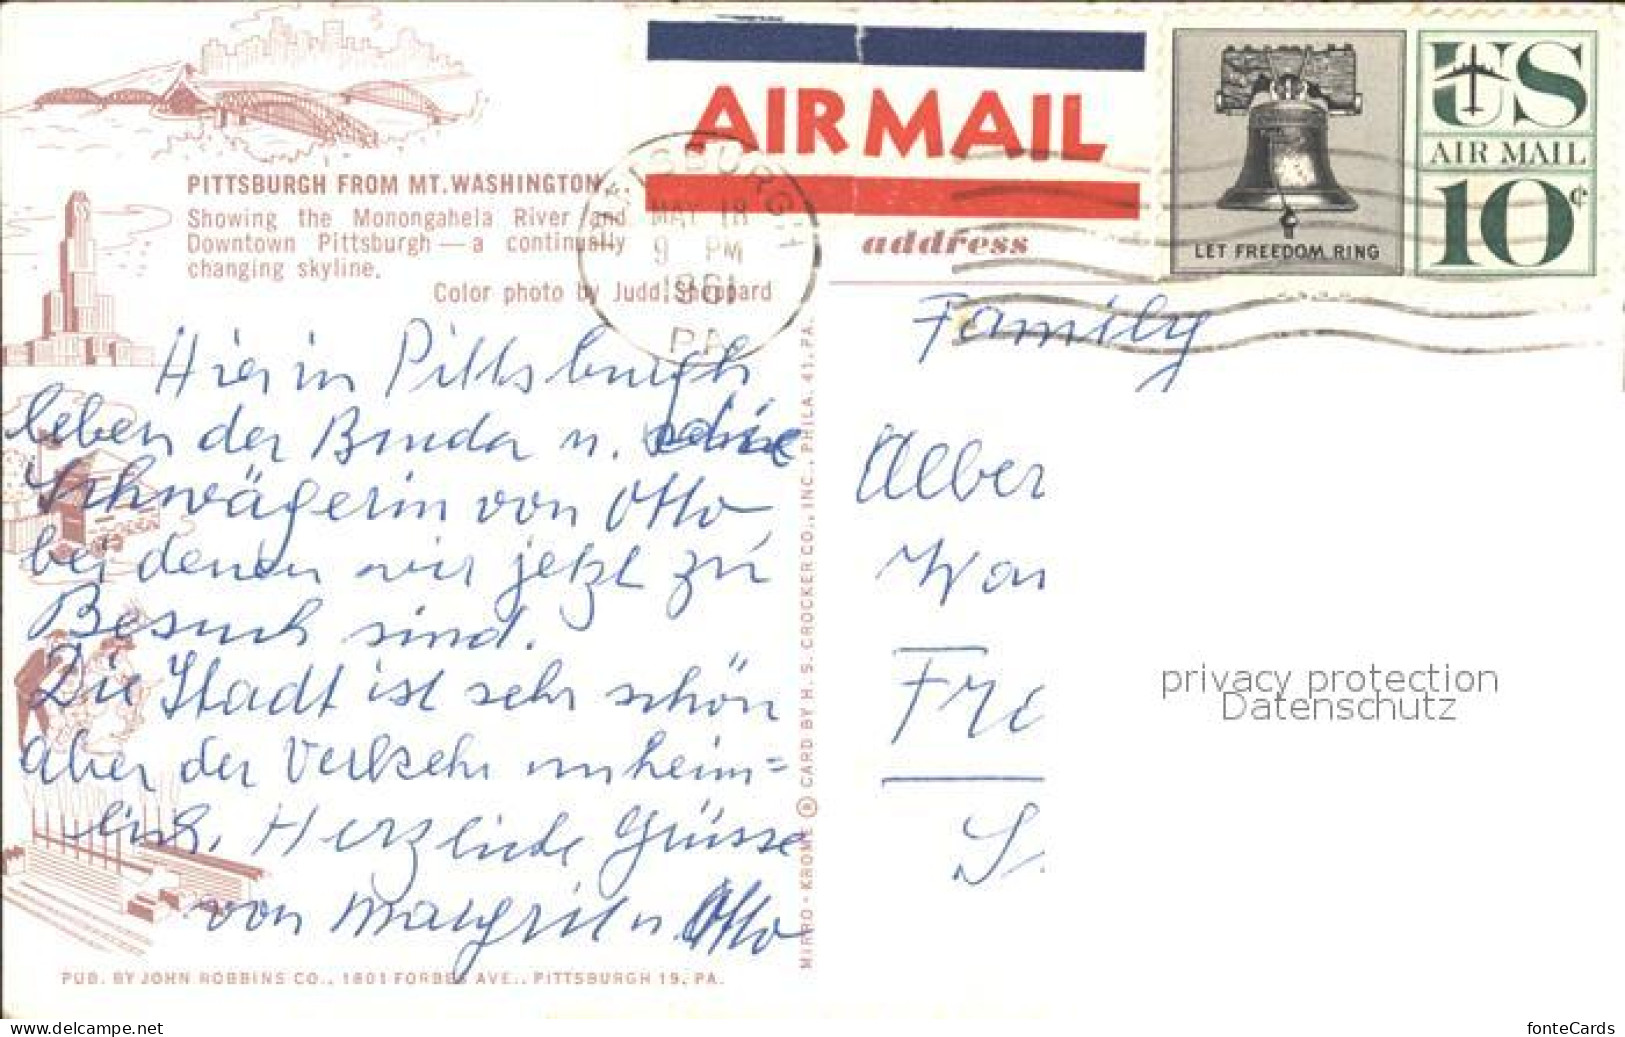 AIR MAIL
LET FREEDOM RING
US
AIR MAIL
10¢
PITTSBURGH FROM MT. WASHINGTON
Showing the Monongahela River and
Downtown Pittsburgh — a continually
changing skyline.
Color photo by Judd Sheppard
PITTSBURGH
MAY 18
9 PM
1961
PA
address
Hier in Pittsburgh
leben der Bruder u. die
Schwägerin von Otto
bei denen wir jetzt zu
Besuch sind.
Die Stadt ist sehr schön
aber der Verkehr unheim=
lich. Herzliche Grüsse
von Margrit u. Otto
MIRRO-KROME ® CARD BY H. S. CROCKER CO., INC., PHILA. 41, PA.
PUB. BY JOHN ROBBINS CO., 1801 FORBES AVE., PITTSBURGH 19, PA.
Family
Alber
privacy protection
Datenschutz
www.delcampe.net
fonteCards